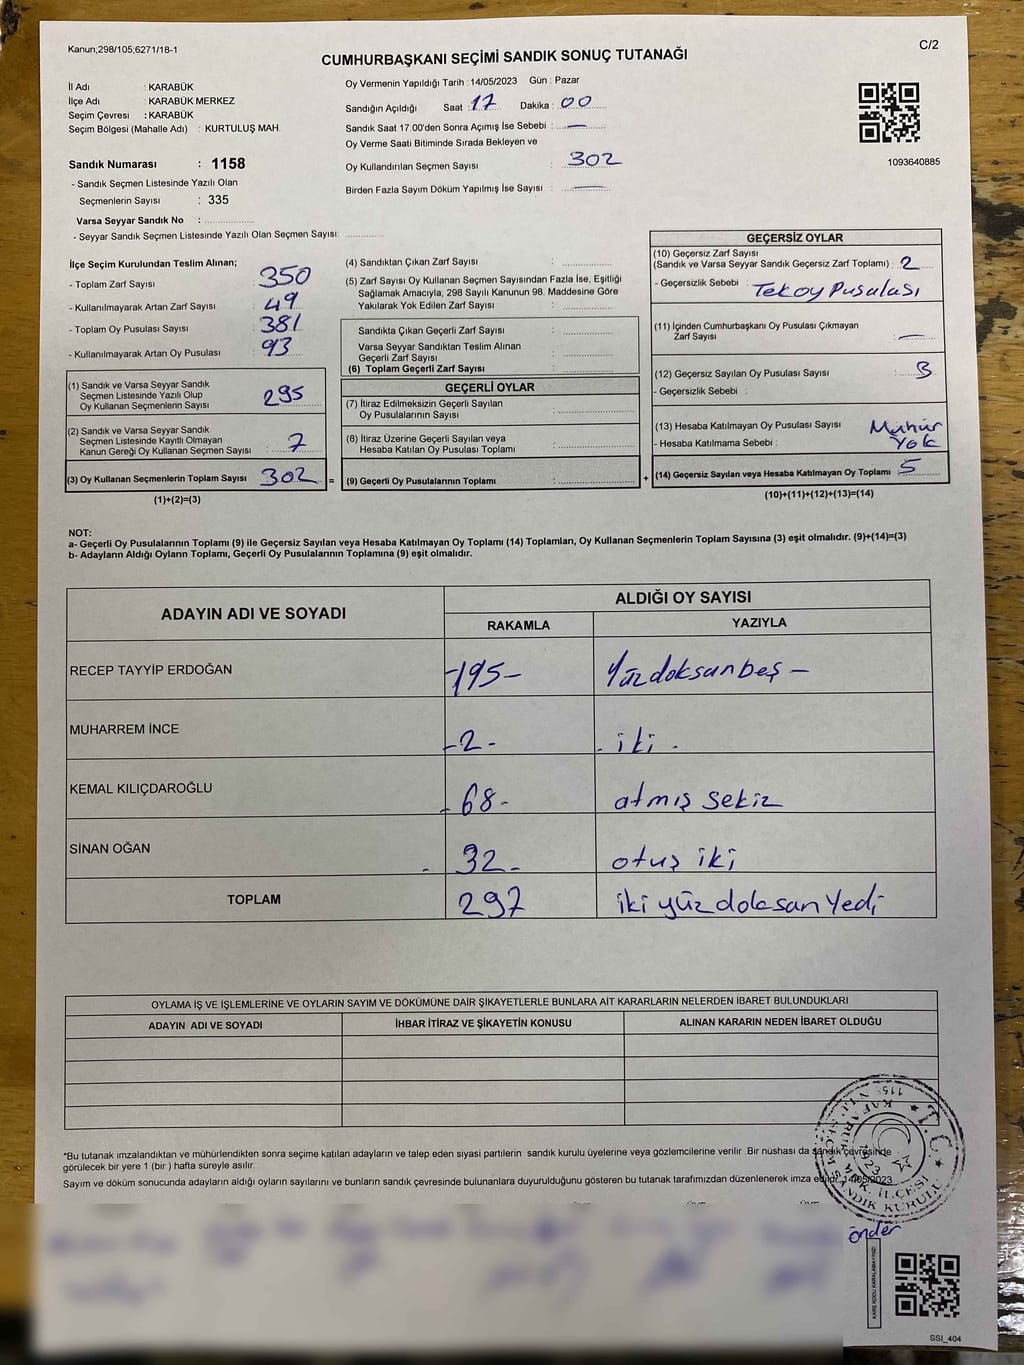 Kanun;298/105;6271/18-1
C/2
CUMHURBAŞKANI SEÇİMİ SANDIK SONUÇ TUTANAĞI
İl Adı : KARABÜK
İlçe Adı : KARABÜK MERKEZ
Seçim Çevresi : KARABÜK
Seçim Bölgesi (Mahalle Adı) : KURTULUŞ MAH.
Sandık Numarası : 1158
- Sandık Seçmen Listesinde Yazılı Olan
Seçmenlerin Sayısı : 335
Varsa Seyyar Sandık No :
- Seyyar Sandık Seçmen Listesinde Yazılı Olan Seçmen Sayısı:
Oy Vermenin Yapıldığı Tarih : 14/05/2023 Gün : Pazar
Sandığın Açıldığı Saat : 17 Dakika : 00
Sandık Saat 17.00'den Sonra Açımış İse Sebebi : —
Oy Verme Saati Bitiminde Sırada Bekleyen ve
Oy Kullandırılan Seçmen Sayısı : 302
Birden Fazla Sayım Döküm Yapılmış İse Sayısı : —
1093640885
İlçe Seçim Kurulundan Teslim Alınan;
- Toplam Zarf Sayısı : 350
- Kullanılmayarak Artan Zarf Sayısı : 49
- Toplam Oy Pusulası Sayısı : 381
- Kullanılmayarak Artan Oy Pusulası : 93
(1) Sandık ve Varsa Seyyar Sandık
Seçmen Listesinde Yazılı Olup
Oy Kullanan Seçmenlerin Sayısı : 295
(2) Sandık ve Varsa Seyyar Sandık
Seçmen Listesinde Kayıtlı Olmayan
Kanun Gereği Oy Kullanan Seçmen Sayısı : 7
(3) Oy Kullanan Seçmenlerin Toplam Sayısı : 302
(1)+(2)=(3)
=
(4) Sandıktan Çıkan Zarf Sayısı :
(5) Zarf Sayısı Oy Kullanan Seçmen Sayısından Fazla İse, Eşitliği
Sağlamak Amacıyla, 298 Sayılı Kanunun 98. Maddesine Göre
Yakılarak Yok Edilen Zarf Sayısı :
Sandıkta Çıkan Geçerli Zarf Sayısı :
Varsa Seyyar Sandıktan Teslim Alınan
Geçerli Zarf Sayısı :
(6) Toplam Geçerli Zarf Sayısı :
GEÇERLİ OYLAR
(7) İtiraz Edilmeksizin Geçerli Sayılan
Oy Pusulalarının Sayısı :
(8) İtiraz Üzerine Geçerli Sayılan veya
Hesaba Katılan Oy Pusulası Toplamı :
(9) Geçerli Oy Pusulalarının Toplamı :
+
GEÇERSİZ OYLAR
(10) Geçersiz Zarf Sayısı
(Sandık ve Varsa Seyyar Sandık Geçersiz Zarf Toplamı) : 2
- Geçersizlik Sebebi : Tek oy Pusulası
(11) İçinden Cumhurbaşkanı Oy Pusulası Çıkmayan
Zarf Sayısı : —
(12) Geçersiz Sayılan Oy Pusulası Sayısı : 3
- Geçersizlik Sebebi :
(13) Hesaba Katılmayan Oy Pusulası Sayısı : Mühür
- Hesaba Katılmama Sebebi : Yok
(14) Geçersiz Sayılan veya Hesaba Katılmayan Oy Toplamı : 5
(10)+(11)+(12)+(13)=(14)
NOT:
a- Geçerli Oy Pusulalarının Toplamı (9) ile Geçersiz Sayılan veya Hesaba Katılmayan Oy Toplamı (14) Toplamları, Oy Kullanan Seçmenlerin Toplam Sayısına (3) eşit olmalıdır. (9)+(14)=(3)
b- Adayların Aldığı Oyların Toplamı, Geçerli Oy Pusulalarının Toplamına (9) eşit olmalıdır.
ADAYIN ADI VE SOYADI ALDIĞI OY SAYISI
RAKAMLA YAZIYLA
RECEP TAYYİP ERDOĞAN -195- Yüzdoksanbeş -
MUHARREM İNCE -2- - iki -
KEMAL KILIÇDAROĞLU - 68- atmış sekiz
SİNAN OĞAN - 32- otuş iki
TOPLAM 297 iki yüz doksan Yedi
OYLAMA İŞ VE İŞLEMLERİNE VE OYLARIN SAYIM VE DÖKÜMÜNE DAİR ŞİKAYETLERLE BUNLARA AİT KARARLARIN NELERDEN İBARET BULUNDUKLARI
ADAYIN ADI VE SOYADI İHBAR İTİRAZ VE ŞİKAYETİN KONUSU ALINAN KARARIN NEDEN İBARET OLDUĞU
*Bu tutanak imzalandıktan ve mühürlendikten sonra seçime katılan adayların ve talep eden siyasi partilerin sandık kurulu üyelerine veya gözlemcilerine verilir. Bir nüshası da sandık çevresinde
görülecek bir yere 1 (bir ) hafta süreyle asılır.
Sayım ve döküm sonucunda adayların aldığı oyların sayılarını ve bunların sandık çevresinde bulunanlara duyurulduğunu gösteren bu tutanak tarafımızdan düzenlenerek imza edildi. 14/05/2023
T.C.
SANDIK KURULU
önder
KARE KODU KARALAMAYINIZ!
SSI_404